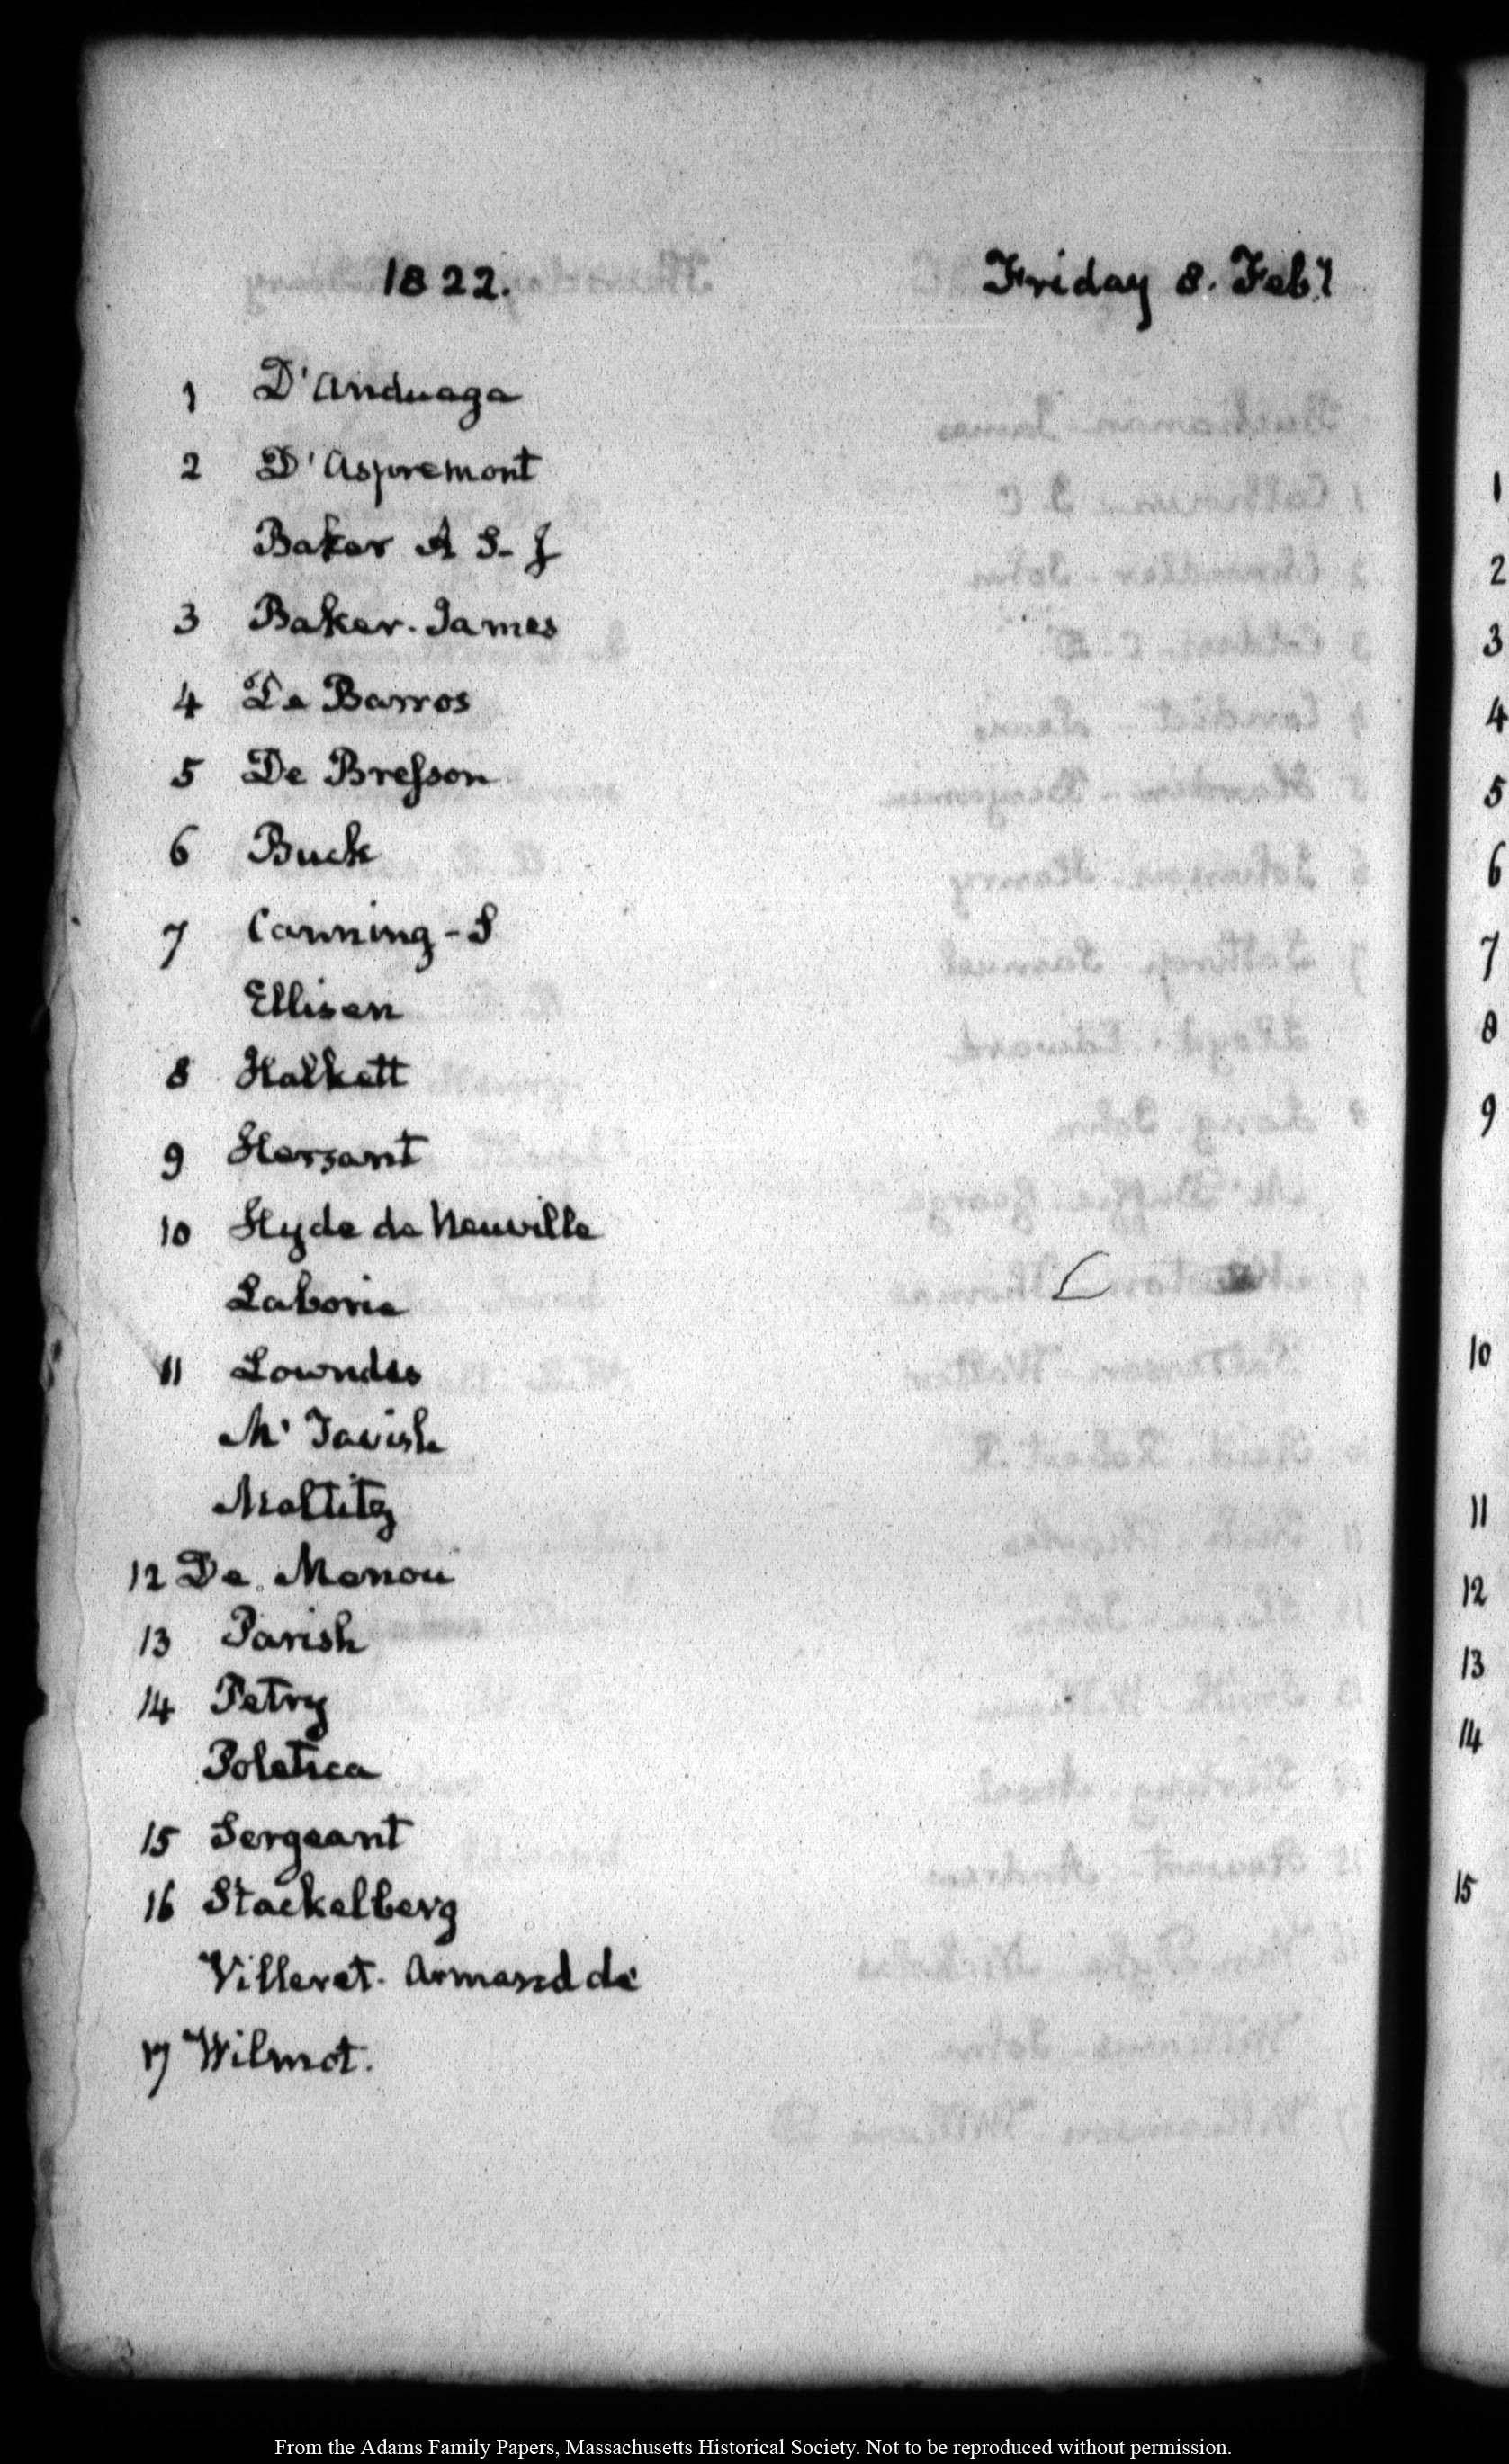 1822. Friday 8. Feby
1 D'Anduaga
2 D'Aspremont
Baker A S-J
3 Baker. James
4 De Barros
5 De Bresson
6 Buck
7 Canning - S
Ellisen
8 Halkett
9 Hersant
10 Hyde de Neuville
Laborie
11 Lowndes
Mc Tavish
Maltitz
12 De Menou
13 Parish
14 Petry
Poletica
15 Sergeant
16 Stackelberg
Villeret. Armand de
17 Wilmot.
1
2
3
4
5
6
7
8
9
10
11
12
13
14
15
From the Adams Family Papers, Massachusetts Historical Society. Not to be reproduced without permission.